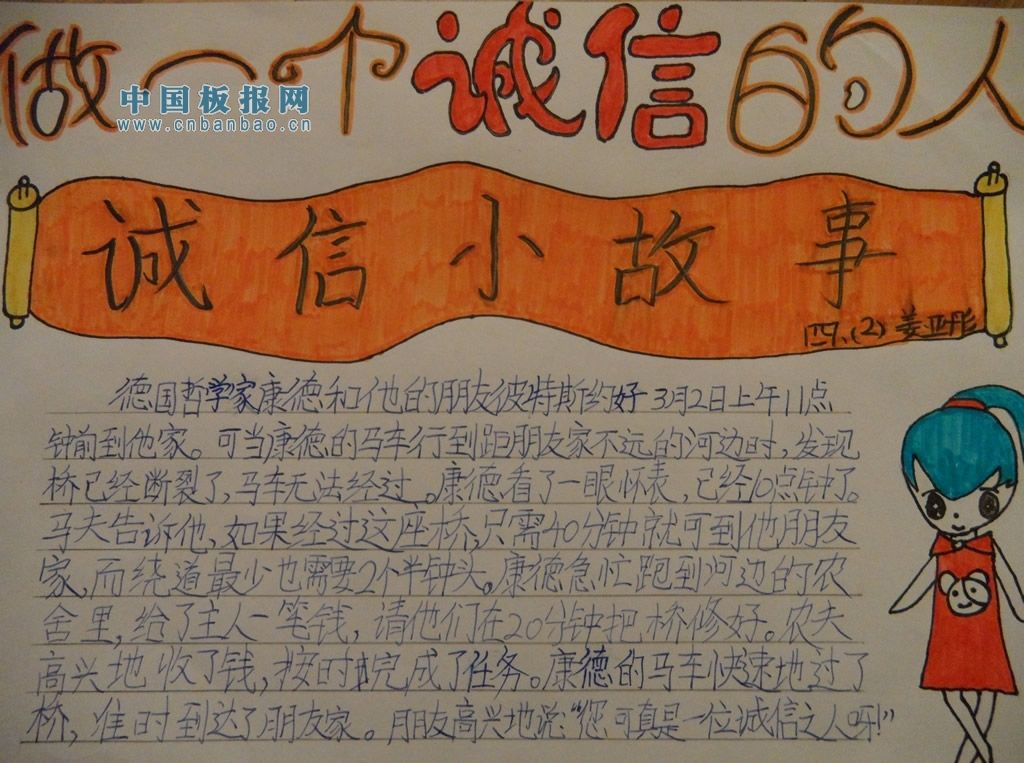 做一个诚信的人
中国板报网
www.cnbanbao.cn
诚信小故事
四、(2) 姜亚彤
德国哲学家康德和他的朋友彼特斯约好3月2日上午11点
钟前到他家。可当康德的马车行到距朋友家不远的河边时，发现
桥已经断裂了，马车无法经过。康德看了一眼怀表，已经10点钟了。
马夫告诉他，如果经过这座桥，只需40分钟就可到他朋友
家，而绕道最少也需要2个半钟头。康德急忙跑到河边的农
舍里，给了主人一笔钱，请他们在20分钟把桥修好。农夫
高兴地收了钱，按时完成了任务。康德的马车快速地过了
桥，准时到达了朋友家。朋友高兴地说：“您可真是一位诚信之人呀！”